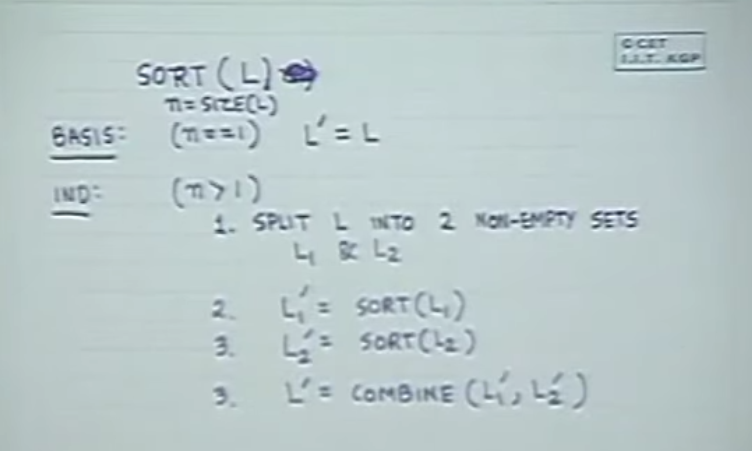 © CET
I.I.T. KGP
SORT (L)
n = SIZE(L)
BASIS: (n==1) L' = L
IND: (n>1)
1. SPLIT L INTO 2 NON-EMPTY SETS
L₁ & L₂
2. L₁' = SORT(L₁)
3. L₂' = SORT(L₂)
3. L' = COMBINE (L₁', L₂')